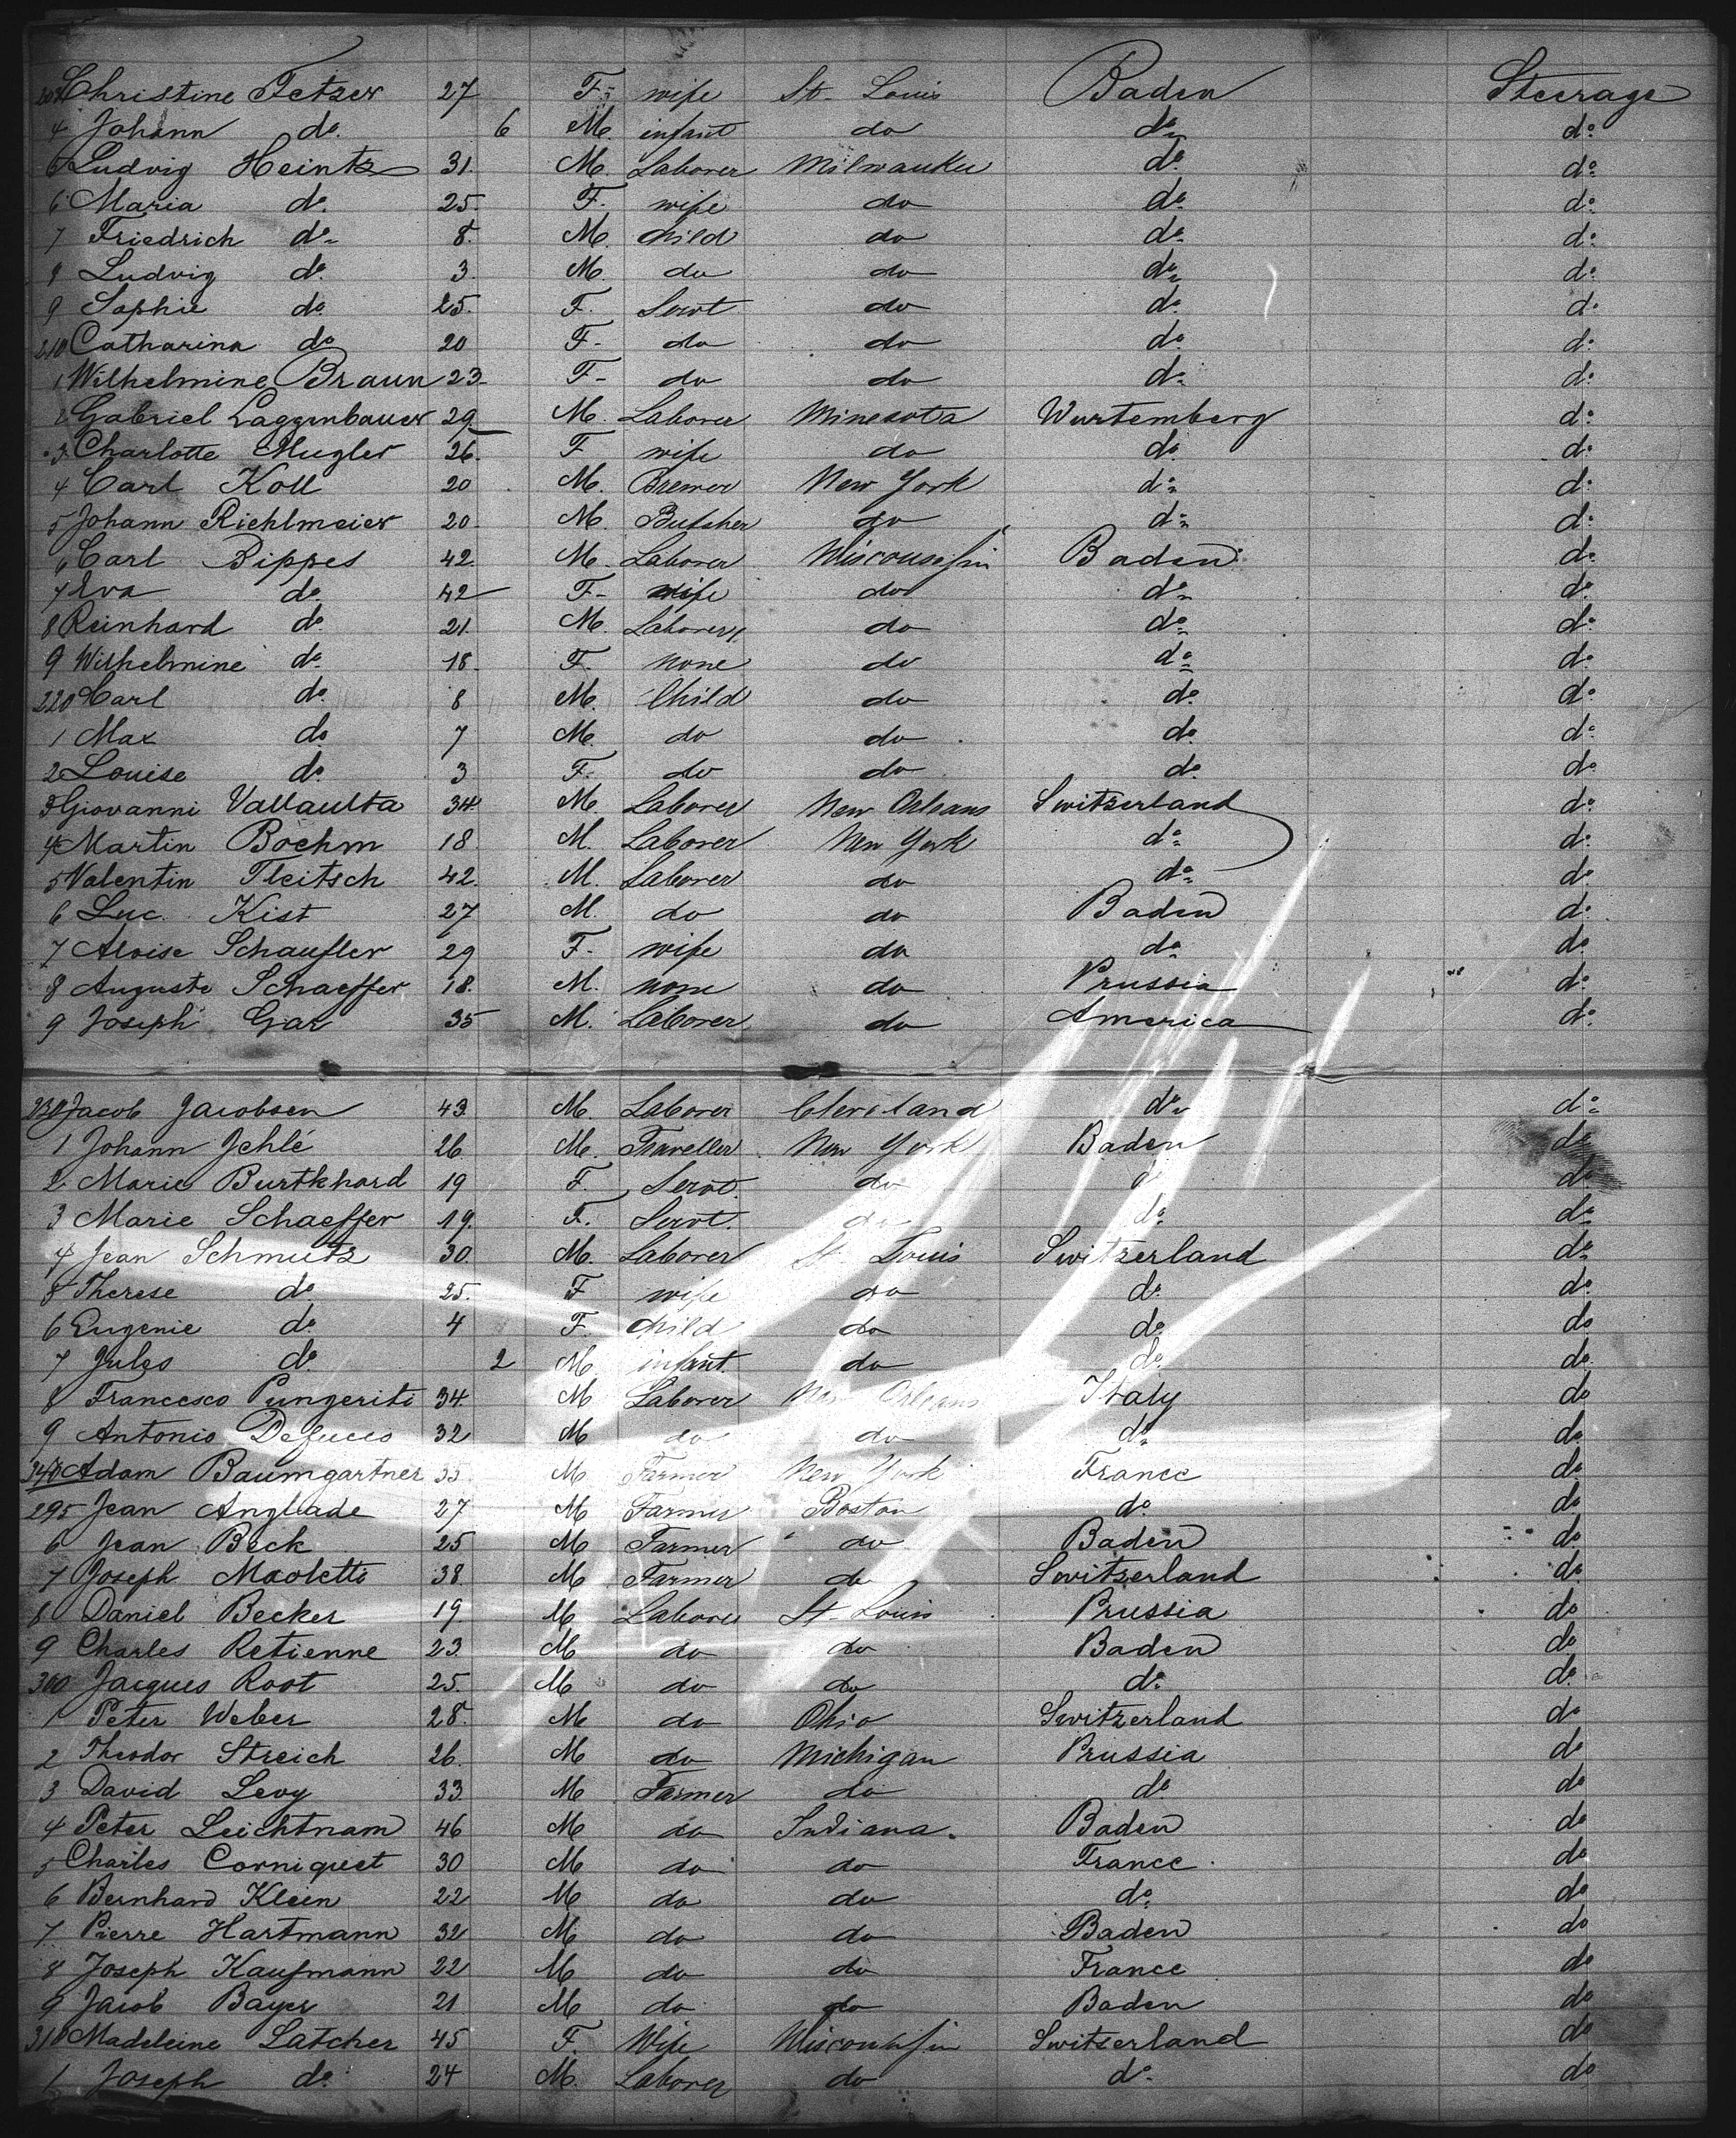 203 Christine Fetzer 27 F. wife St. Louis Baden Steerage
4 Johann do. 6 M. infant do do do
5 Ludvig Heintz 31. M. Laborer Milwaukee do do
6 Maria do. 25. F. wife do do do
7 Friedrich do 8. M. Child do do do
8 Ludvig do. 3. M. do do do do
9 Sophie do. 25. F. Servt do do do
210 Catharina do 20 F- do do do do
1 Wilhelmine Braun 23- F- do do do do
2 Gabriel Laggenbauer 29 M. Laborer Minesota Wurtemberg do
3 Charlotte Mugler 26. F wife do do do
4 Carl Koll 20 M. Brewer New York do do
5 Johann Riehlmeier 20. M. Butcher do do do
6 Carl Bippes 42. M. Laborer Wisconssin Baden do
7 Eva do. 42 F- wife do do do
8 Reinhard do 21. M. Laborer do do do
9 Wilhelmine do 18. F. none do do do
220 Carl do 8 M. Child do do do
1 Max do 7 M. do do do do
2 Louise do. 3 F. do do do do
3 Giovanni Vallaulta 34 M Laborer New Orleans Switzerland do
4 Martin Boehm 18. M. Laborer New York do do
5 Valentin Fleitsch 42. M. Laborer do do do
6 Luc. Kist 27 M. do do Baden do
7 Aloise Schaufler 29 F- wife do do do
8 Auguste Schaeffer 18. M. none do Prussia do
9 Joseph Gar 35 M. Laborer do America do
230 Jacob Jacobsen 43. M. Laborer Cleveland do do
1 Johann Jehlé 26 M. Traveller New York Baden do
2 Marie Burtkhard 19 F. Servt. do do do
3 Marie Schaeffer 19. F. Servt. do do do
4 Jean Schmutz 30. M. Laborer St. Louis Switzerland do
5 Therese do 25. F wife do do do
6 Eugenie do 4 F. Child do do do
7 Jules do. 2 M infant. do do do
8 Francesco Pungeriti 34. M Laborer New Orleans Italy do
9 Antonio Defucco 32 M do do do do
340 Adam Baumgartner 35 M Farmer New York France do
295 Jean Anglade 27 M Farmer Boston do do
6 Jean Beck 25 M Farmer do Baden do
7 Joseph Maoletti 38 M Farmer do Switzerland do
8 Daniel Becker 19 M Laborer St. Louis Prussia do
9 Charles Retienne 23. M do do Baden do
300 Jacques Root 25. M do do do do
1 Peter Weber 28. M do Ohio Switzerland do
2 Theodor Streich 26. M do Michigan Prussia do
3 David Levy 33 M Farmer do do do
4 Peter Leichtnam 46 M do Indiana. Baden do
5 Charles Corniquet 30 M do do France do
6 Bernhard Klein 22 M do do do do
7 Pierre Hartmann 32 M do do Baden do
8 Joseph Kaufmann 22 M do do France do
9 Jacob Bayer 21 M do do Baden do
310 Madeleine Latcher 45 F. Wife Wisconssin Switzerland do
1 Joseph do 24 M. Laborer do do do